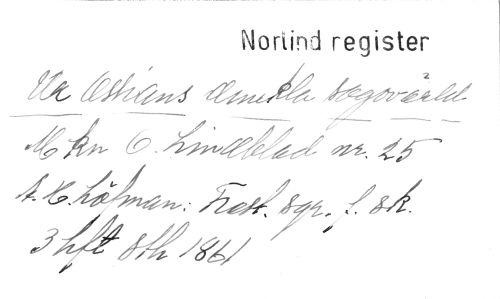 Norlind register
Ur Ossians dunkla sagovärld
M kn O. Lindblad nr. 25
A. H. Löfman: Frest. sgr. f. sk.
3 hft Sth 1861